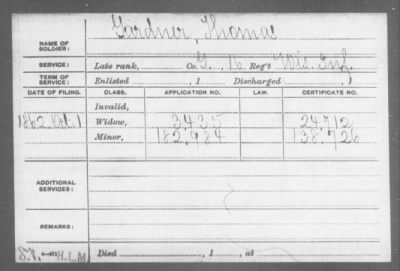 Gardner, Thomas
NAME OF SOLDIER:
SERVICE: Late rank, Co. G, 16 Reg't Wis. Inf.
TERM OF SERVICE: Enlisted , 1 Discharged , 1
DATE OF FILING. CLASS. APPLICATION NO. LAW. CERTIFICATE NO.
Invalid,
1862. Oct. 1 Widow, 3435 24.712
Minor, 182.984 138.726
ADDITIONAL SERVICES:
REMARKS:
H.L.M Died , 1 , at